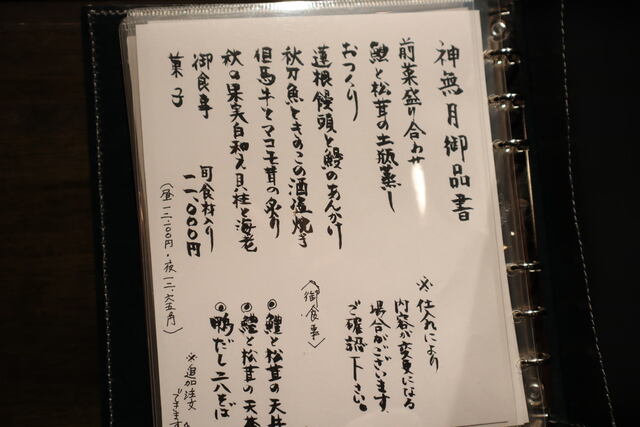 神無月御品書
前菜盛り合わせ
鱧と松茸の土瓶蒸し
おつくり
蓮根饅頭と鰻のあんかけ
秋刀魚ときのこの酒塩焼き
但馬牛とマコモ茸の炙り
秋の果実白和え貝柱と海老
御食事
菓子
旬食材入り
一一、〇〇〇円
(昼一二、一〇〇円・夜一二、六五〇円)
※仕入れにより
内容が変更になる
場合がございます
ご確認下さい。
〈御食事〉
◉鱧と松茸の天丼
◉鱧と松茸の天茶
◉鴨だし二八そば
※追加注文
できます